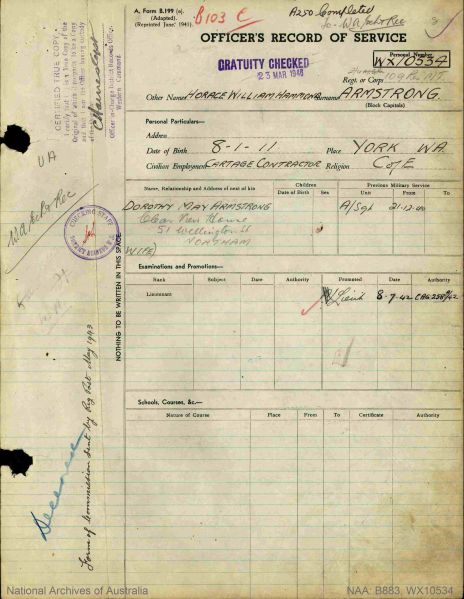 A. Form B.199 (a).
(Adapted).
(Reprinted June 1941).
B103 C
A250 Completed
to WA Ech Rec
OFFICER'S RECORD OF SERVICE
GRATUITY CHECKED
23 MAR 1948
Personal Number
WX10534
Regt. or Corps
Other Names HORACE WILLIAM HAMMOND Surname ARMSTRONG.
(Block Capitals)
CERTIFIED TRUE COPY.
Personal Particulars—
Address
Date of Birth 8-1-11 Place YORK WA.
Civilian Employment CARTAGE CONTRACTOR Religion C of E
Name, Relationship and Address of next of kin
Children
Date of Birth Sex
Previous Military Service
Unit From To
DOROTHY MAY ARMSTRONG
51 Wellington St
NORTHAM
WIFE)
A/Sgt 21-12-40
WA Ech Rec
CHECKING STAFF
NOTHING TO BE WRITTEN IN THIS SPACE
Examinations and Promotions—
Rank Subject Date Authority Promoted Date Authority
Lieutenant Lieut 8-7-42
Schools, Courses, &c.—
Nature of Course Place From To Certificate Authority
Deceased
Form of Commission sent by Reg Post May 1943
National Archives of Australia
NAA: B883, WX10534